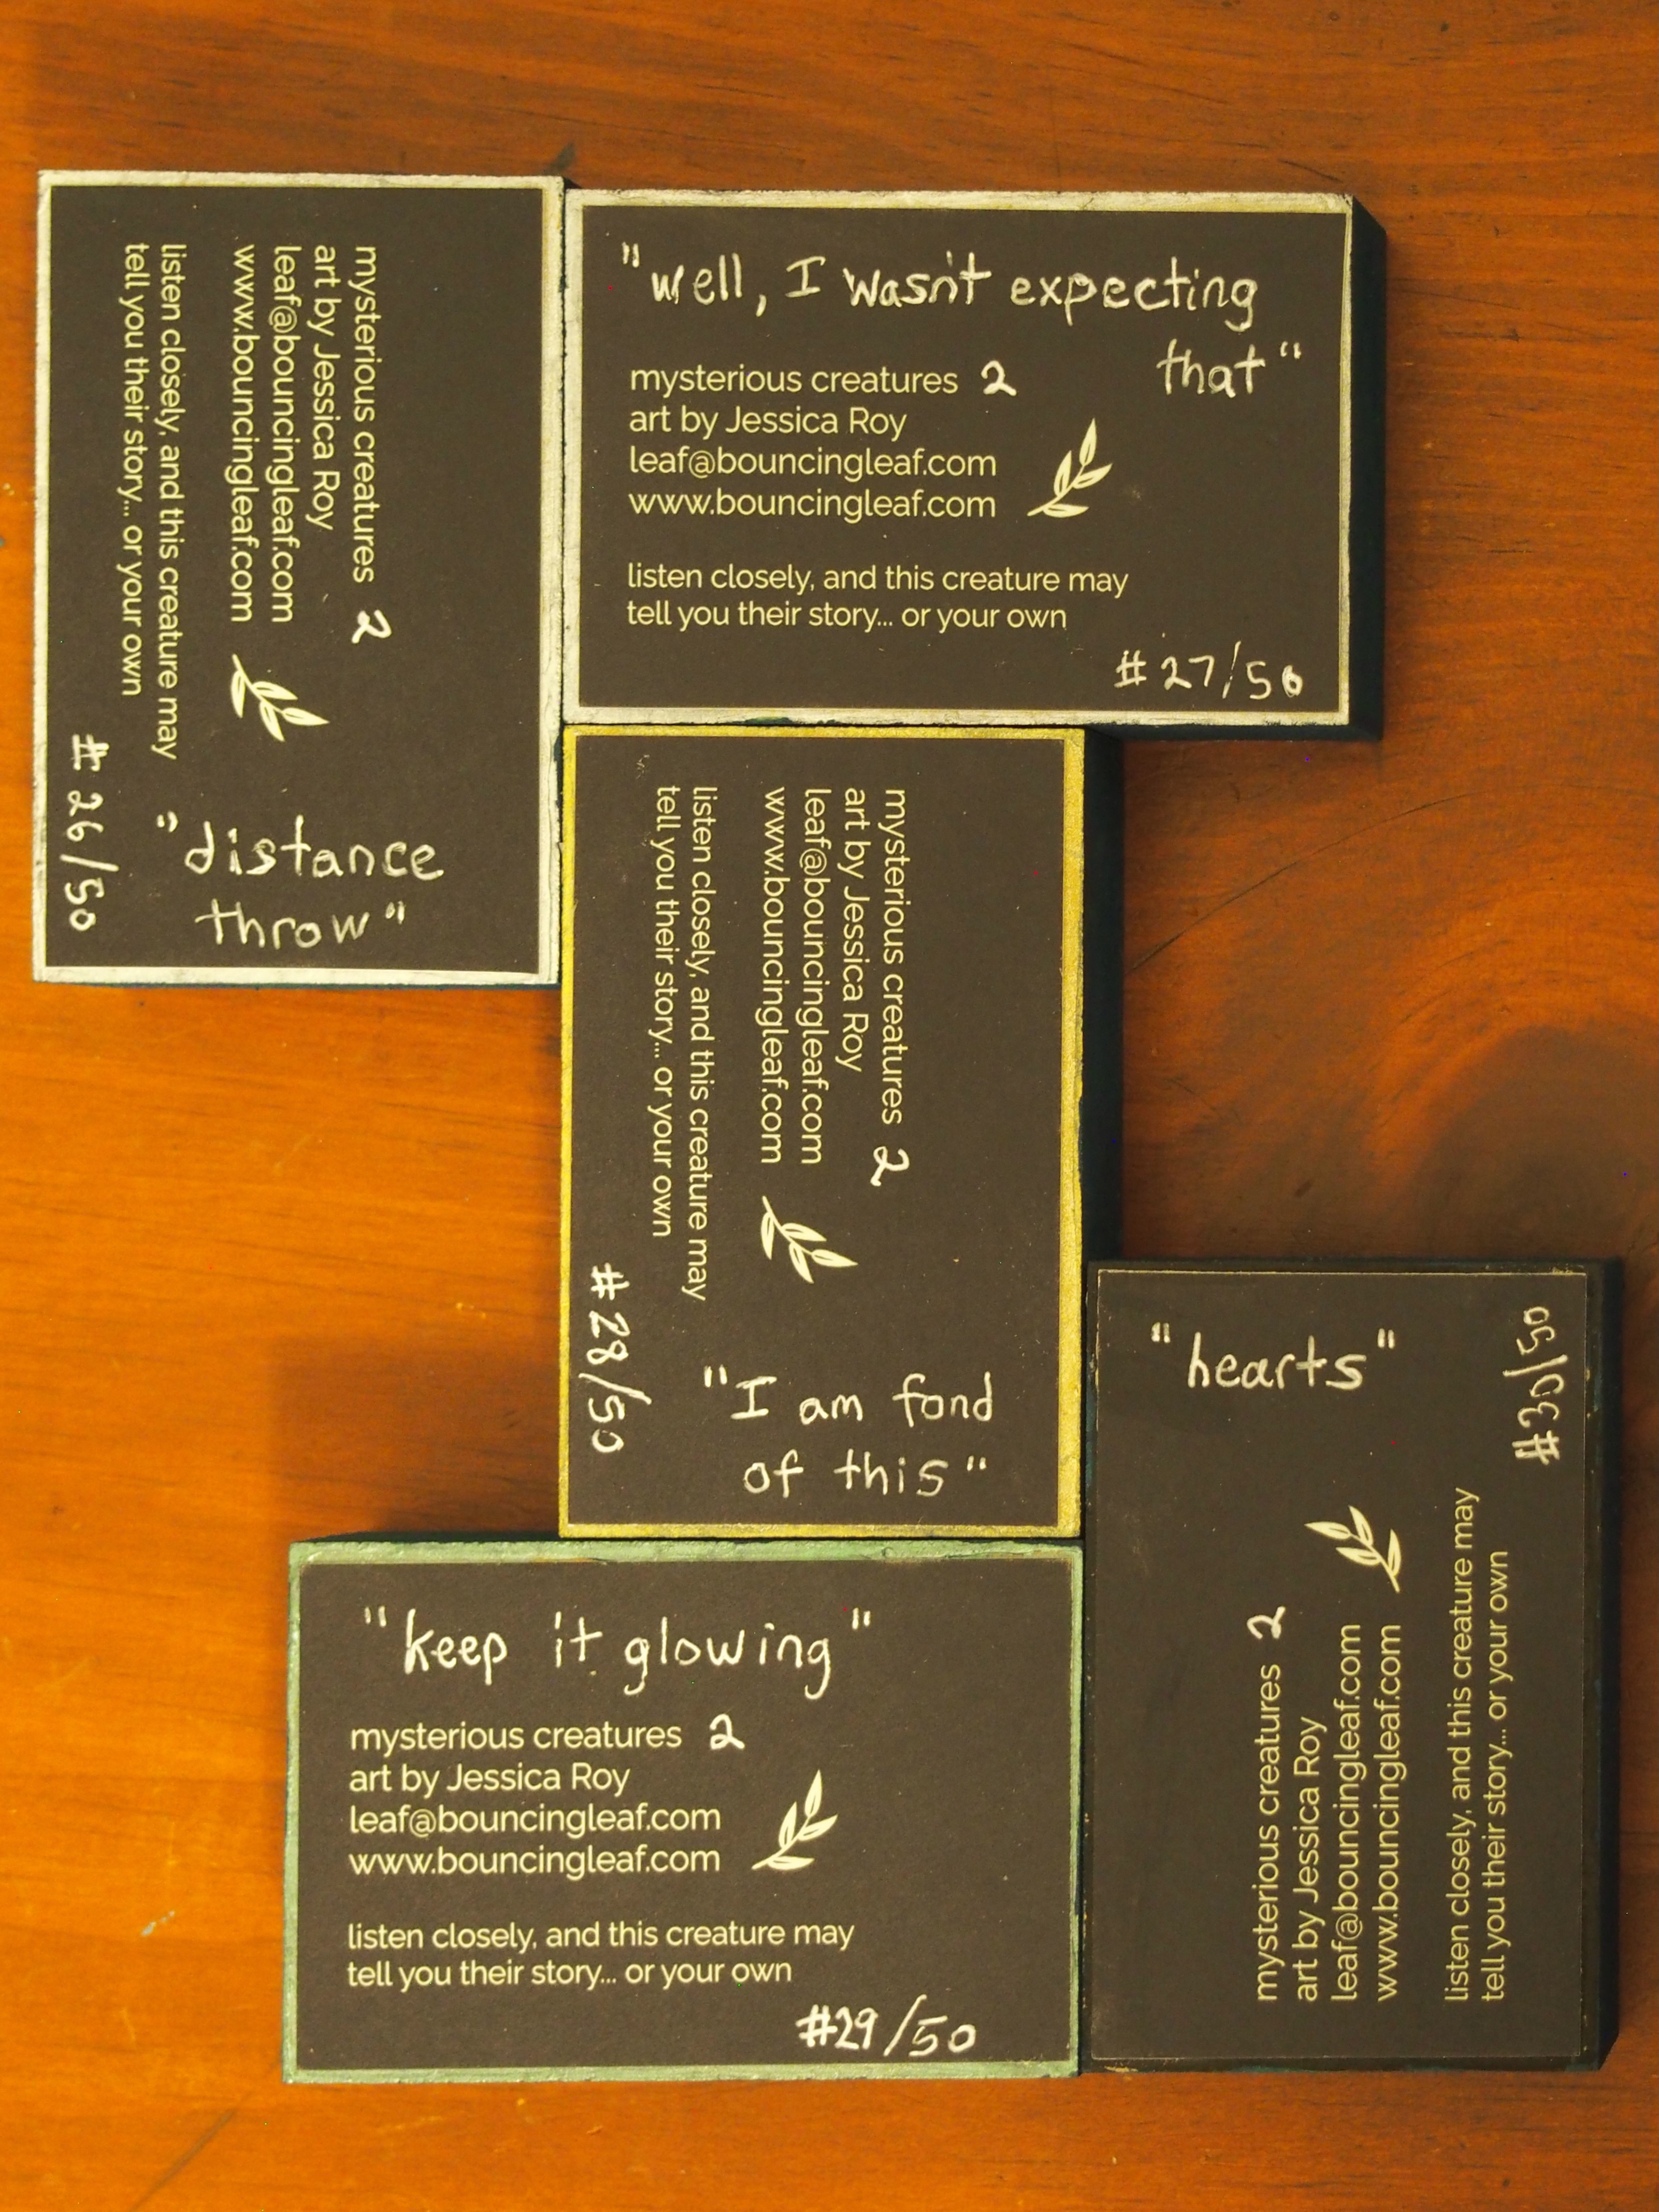 mysterious creatures 2
art by Jessica Roy
leaf@bouncingleaf.com
www.bouncingleaf.com
listen closely, and this creature may
tell you their story... or your own
#26/50
"distance
throw"
"well, I wasn't expecting
that"
mysterious creatures 2
art by Jessica Roy
leaf@bouncingleaf.com
www.bouncingleaf.com
listen closely, and this creature may
tell you their story... or your own
#27/50
mysterious creatures 2
art by Jessica Roy
leaf@bouncingleaf.com
www.bouncingleaf.com
listen closely, and this creature may
tell you their story... or your own
#28/50
"I am fond
of this"
"keep it glowing"
mysterious creatures 2
art by Jessica Roy
leaf@bouncingleaf.com
www.bouncingleaf.com
listen closely, and this creature may
tell you their story... or your own
#29/50
"hearts"
mysterious creatures 2
art by Jessica Roy
leaf@bouncingleaf.com
www.bouncingleaf.com
listen closely, and this creature may
tell you their story... or your own
#30/50